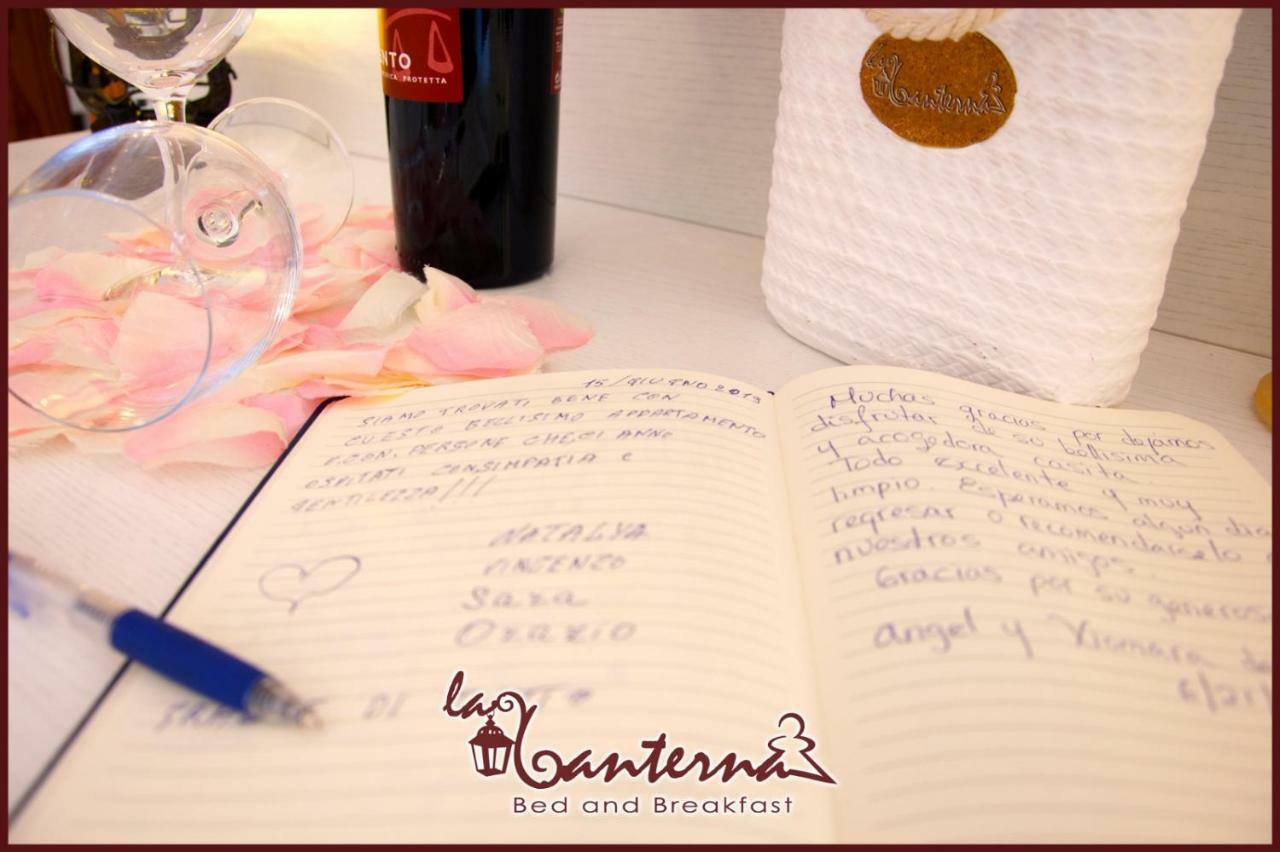 ENTO
PROTETTA
la Lanterna
15/GIUGNO 2019
SIAMO TROVATI BENE CON
CUESTO BELLISIMO APPARTAMENTO
E.CON. PERSONE CHECI ANNO
OSPLTATI CONSIMPATIA e
GENTILEZZA!!!
NATALYA
VINCENZO
Sara
Orazio
DI
Muchas gracias por dejarnos
disfrutar de su bellisima
y acogedora casita.
Todo excelente y muy
limpio. Esperamos algún dia
regresar o recomendarselo a
nuestros amigos.
Gracias por su generos
Angel y Xiomara
6/21/
la Lanterna
Bed and Breakfast